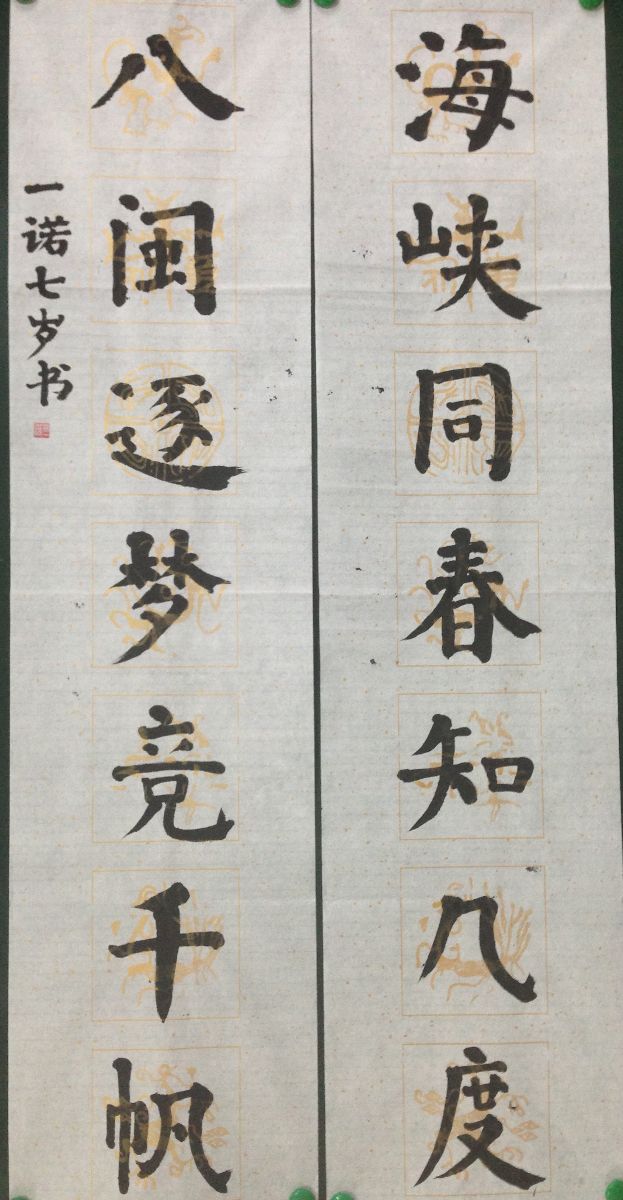 海峡同春知几度
八闽逐梦竞千帆
一诺七岁书